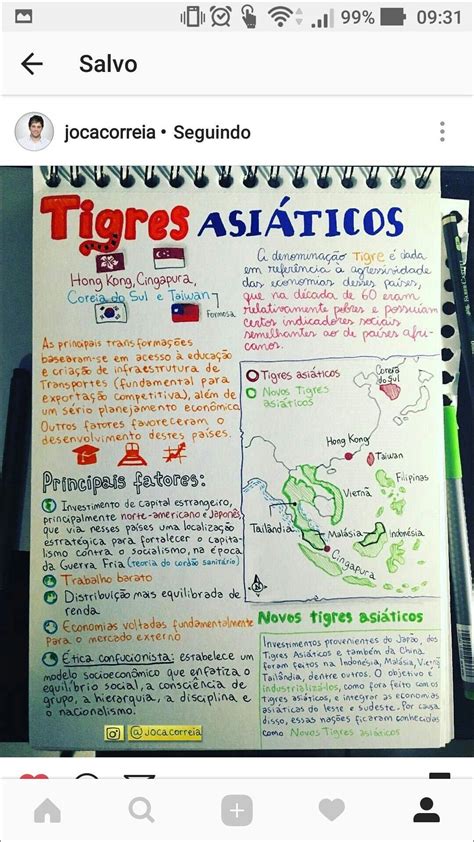 99% 09:31
Salvo
jocacorreia • Seguindo
Tigres ASIÁTICOS
Hong Kong, Cingapura,
Coreia do Sul e Taiwan
Formosa
A denominação Tigre é dada
em referência à agressividade
das economias desses países,
que na década de 60 eram
relativamente pobres e possuíam
certos indicadores sociais
semelhantes ao de países afri-
canos.
As principais transformações
basearam-se em acesso à educação
e criação de infraestrutura de
Transportes (fundamental para
exportação competitiva), além de
um sério planejamento econômico.
Outros fatores favoreceram o
desenvolvimento destes países.
Tigres asiáticos
Novos Tigres
asiáticos
Coreia
do Sul
Hong Kong
Taiwan
Filipinas
Vietnã
Tailândia
Malásia
Indonésia
Cingapura
N
Principais fatores:
Investimento de capital estrangeiro,
principalmente norte-americano e japonês,
que via nesses países uma localização
estratégica para fortalecer o capita-
lismo contra o socialismo, na época
da Guerra Fria (teoria do cordão sanitário)
Trabalho barato
Distribuição mais equilibrada de
renda
Economias voltadas fundamentalmente
para o mercado externo
Ética confucionista: estabelece um
modelo socioeconômico que enfatiza o
equilíbrio social, a consciência de
grupo, a hierarquia, a disciplina e
o nacionalismo.
@jocacorreia
Novos tigres asiáticos
Investimentos provenientes do Japão, dos
Tigres Asiáticos e também da China
foram feitos na Indonésia, Malásia, Vietnã
Tailândia, dentre outros. O objetivo é
industrializá-los, como fora feito com os
Tigres asiáticos, e integrar as economias
asiáticas do leste e sudeste. Por causa
disso, essas nações ficaram conhecidas
como Novos Tigres Asiáticos